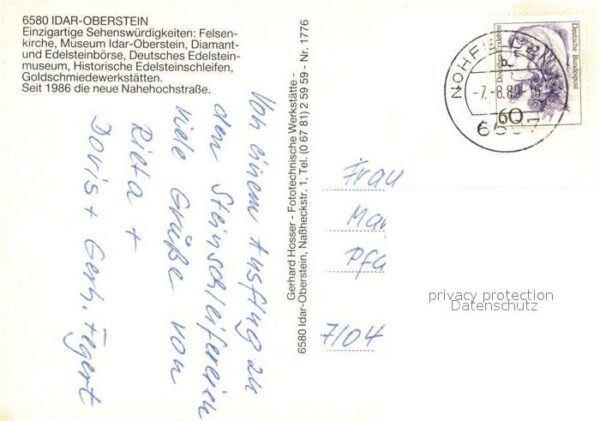 6580 IDAR-OBERSTEIN
Einzigartige Sehenswürdigkeiten: Felsen-
kirche, Museum Idar-Oberstein, Diamant-
und Edelsteinbörse, Deutsches Edelstein-
museum, Historische Edelsteinschleifen,
Goldschmiedewerkstätten.
Seit 1986 die neue Nahehochstraße.
Von einem Ausflug zu
den Steinschleifereien
viele Grüße von
Rieta +
Doris + Gerh. Fegert
Gerhard Hosser - Fototechnische Werkstätte -
6580 Idar-Oberstein, Naßheckstr. 1, Tel. (0 67 81) 2 59 59 - Nr. 1776
NOHFELDEN
-7.-8.89-16
60
Deutsche Bundespost
Frau
Pfa
7104
privacy protection
Datenschutz